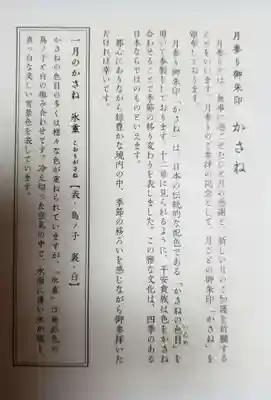 月参り御朱印 かさね
月参りとは、無事に過ごせたひと月の感謝と、新しい月のご加護を祈願する
ことをいいます。月参りのご参拝の記念として、月ごとの御朱印「かさね」を
頒布しております。
月参り御朱印「かさね」は、日本の伝統的な配色である「かさねの色目」を
いろめ
用いて奉製をしております。十二単に見られるように、平安貴族は色をかさね
合わせることで季節の移り変わりを表しました。この雅な文化は、四季のある
日本ならではのものといえます。
都心にありながら緑豊かな境内の中、季節の移ろいを感じながら御参拝いた
だければ幸いです。
一月のかさね 氷重 こおりがさね 【表・鳥ノ子 裏・白】
かさねの色目の多くは様々な色が重ねられていますが、「氷重」は無彩色の
鳥ノ子と白の組み合わせです。冷え切った空気の中で、水面に薄い氷が張り
真っ白な美しい雪景色を表しています。